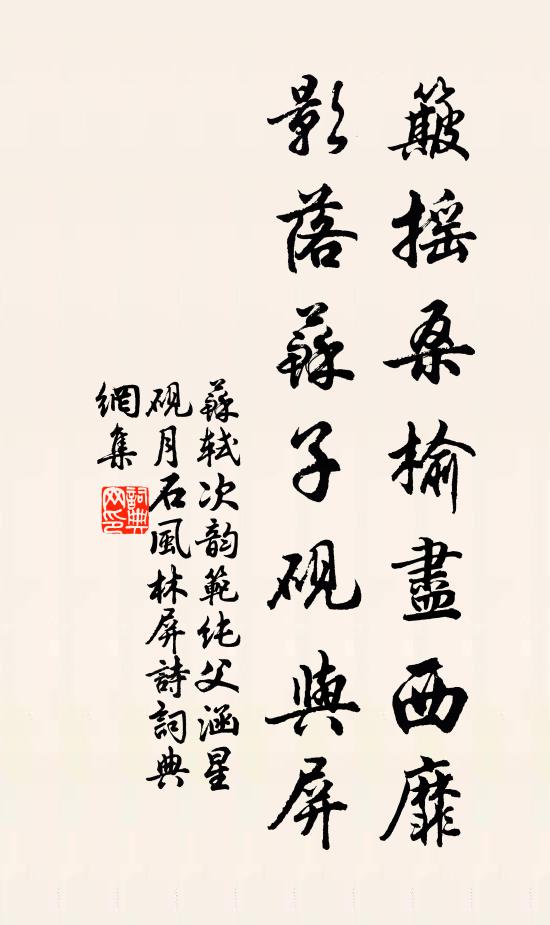 簸搖桑榆盡西靡
影落蘇子硯與屏
蘇軾次韵範純父涵星
硯月石風林屏詩詞典
網集
詞典
网印